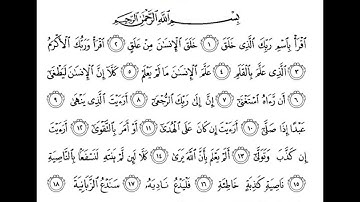 بِسْمِ ٱللَّهِ ٱلرَّحْمَٰنِ ٱلرَّحِيمِ
ٱقْرَأْ بِٱسْمِ رَبِّكَ ٱلَّذِى خَلَقَ ١ خَلَقَ ٱلْإِنسَٰنَ مِنْ عَلَقٍ ٢ ٱقْرَأْ وَرَبُّكَ ٱلْأَكْرَمُ
٣ ٱلَّذِى عَلَّمَ بِٱلْقَلَمِ ٤ عَلَّمَ ٱلْإِنسَٰنَ مَا لَمْ يَعْلَمْ ٥ كَلَّآ إِنَّ ٱلْإِنسَٰنَ لَيَطْغَىٰٓ
٦ أَن رَّءَاهُ ٱسْتَغْنَىٰٓ ٧ إِنَّ إِلَىٰ رَبِّكَ ٱلرُّجْعَىٰٓ ٨ أَرَءَيْتَ ٱلَّذِى يَنْهَىٰ ٩
عَبْدًا إِذَا صَلَّىٰٓ ١٠ أَرَءَيْتَ إِن كَانَ عَلَى ٱلْهُدَىٰٓ ١١ أَوْ أَمَرَ بِٱلتَّقْوَىٰٓ ١٢ أَرَءَيْتَ
إِن كَذَّبَ وَتَوَلَّىٰٓ ١٣ أَلَمْ يَعْلَم بِأَنَّ ٱللَّهَ يَرَىٰ ١٤ كَلَّا لَئِن لَّمْ يَنتَهِ لَنَسْفَعًۢا بِٱلنَّاصِيَةِ
١٥ نَاصِيَةٍ كَٰذِبَةٍ خَاطِئَةٍ ١٦ فَلْيَدْعُ نَادِيَهُۥ ١٧ سَنَدْعُ ٱلزَّبَانِيَةَ ١٨